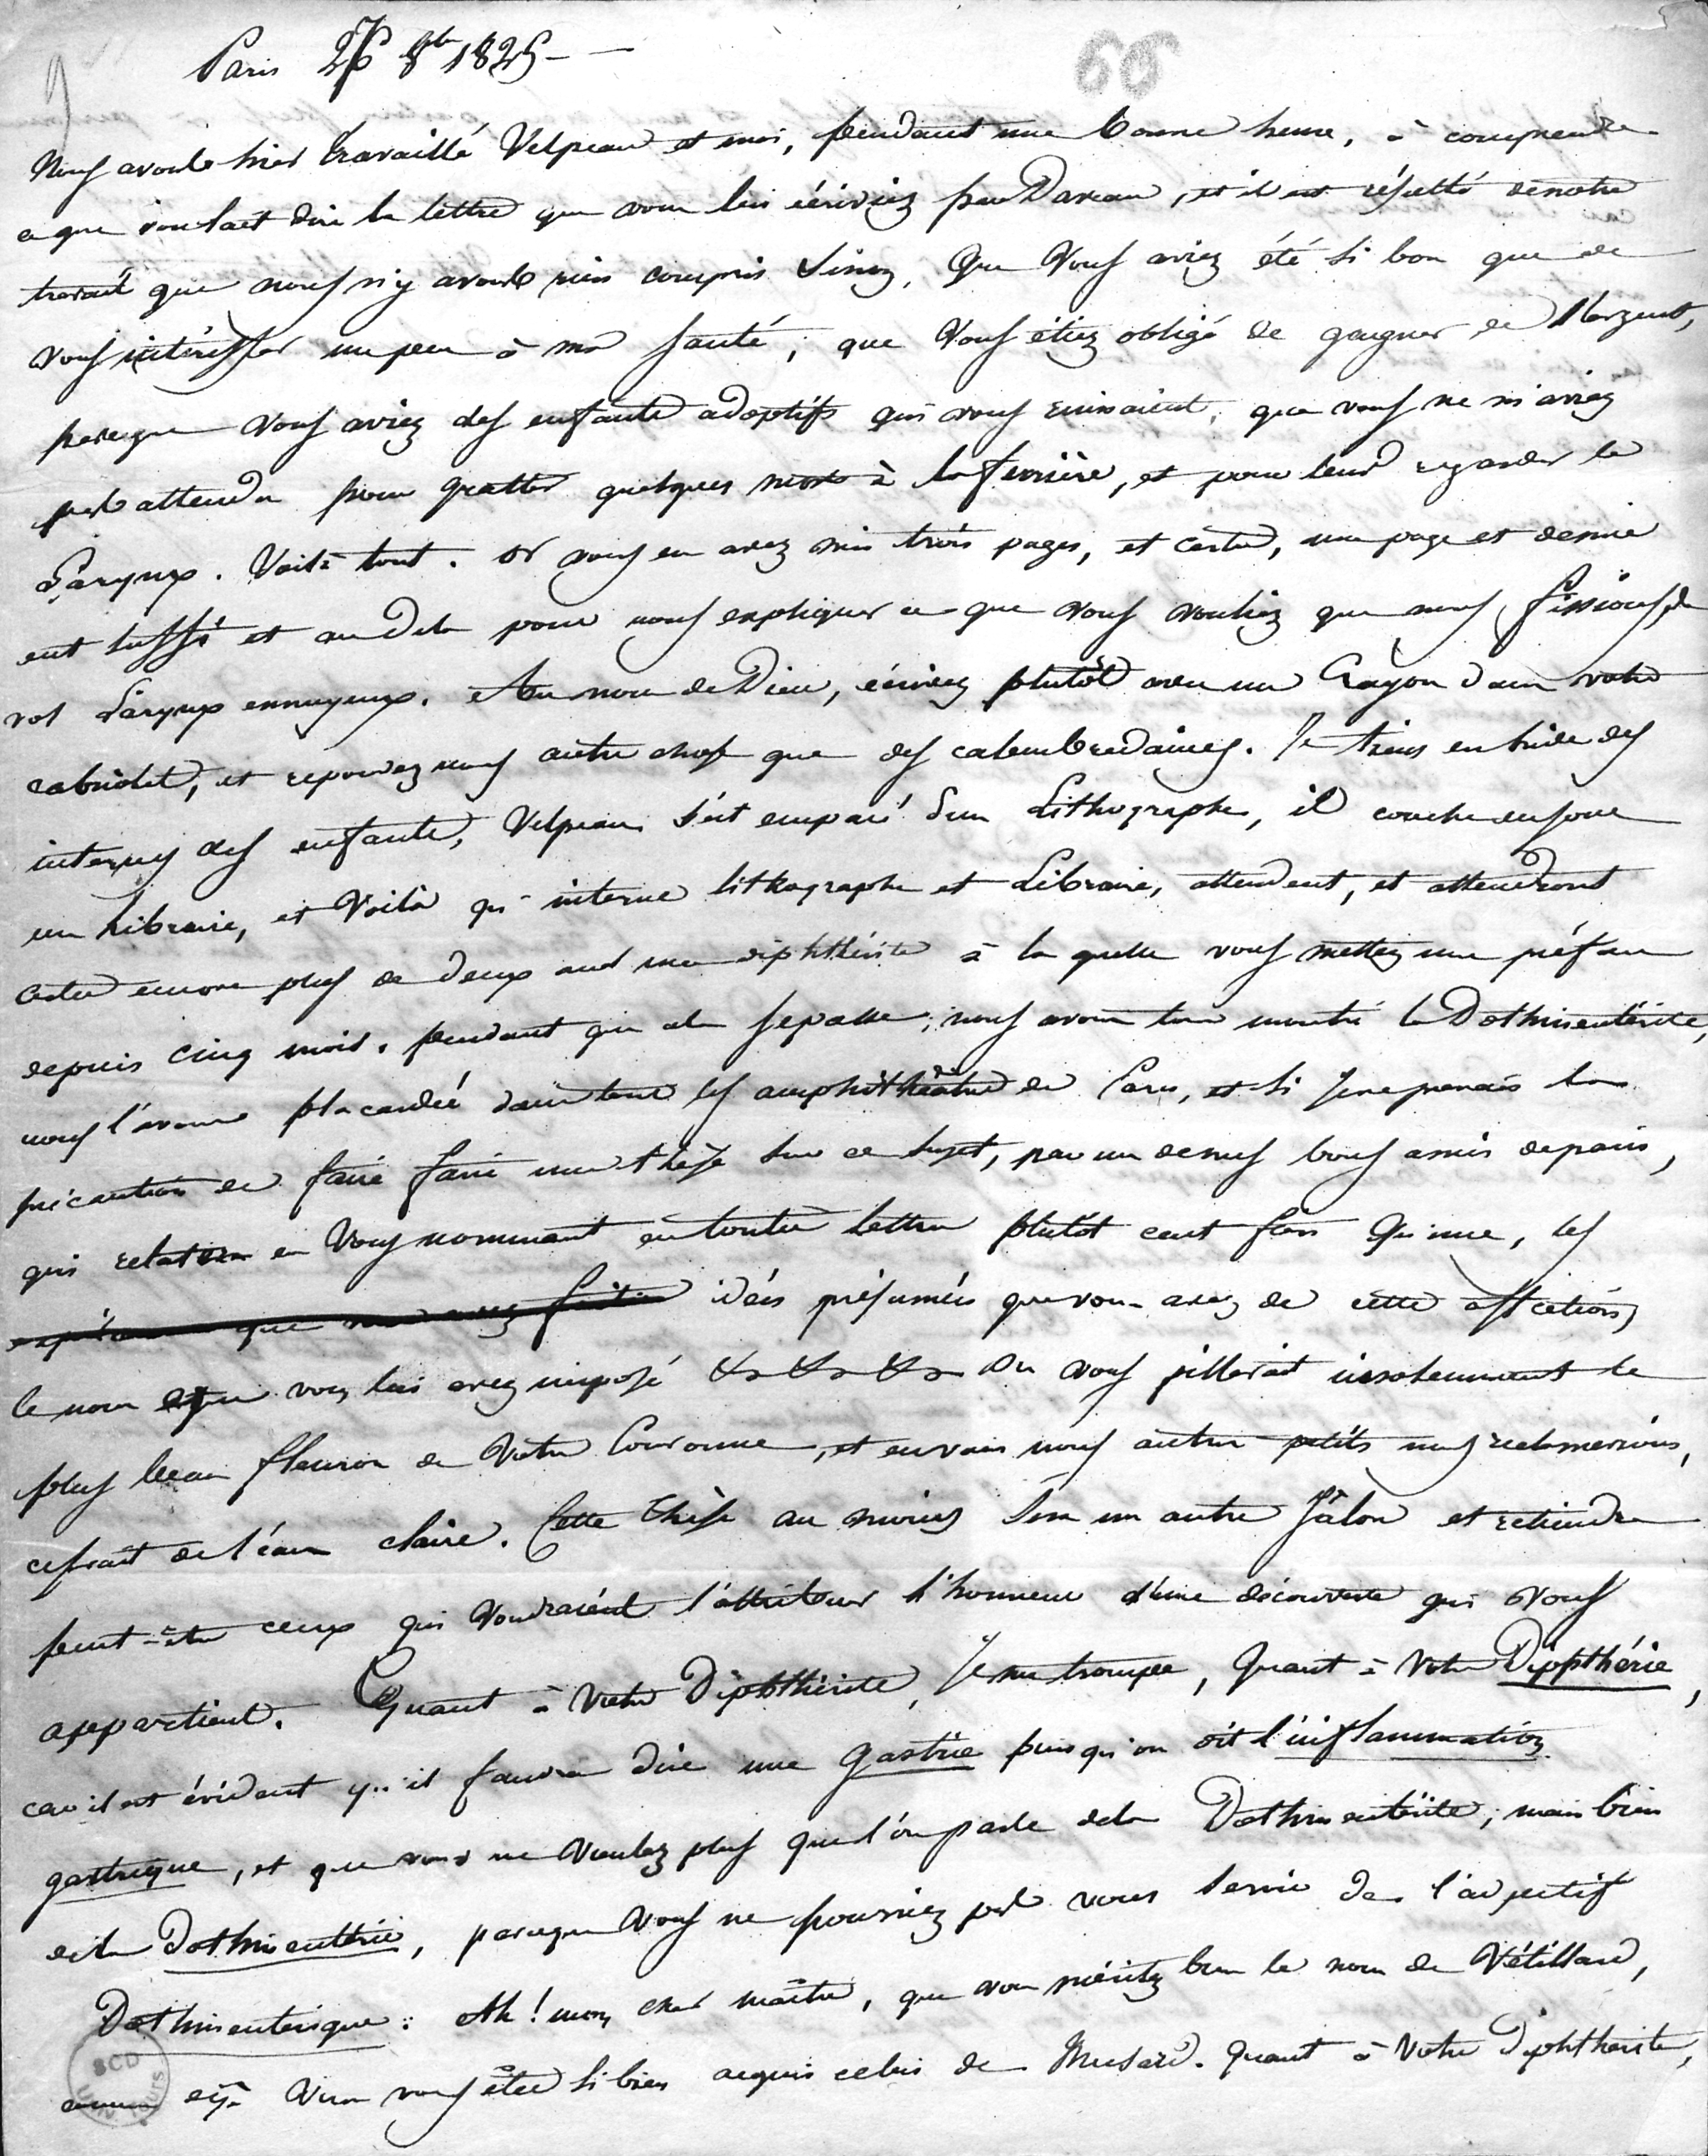 Paris 26 8bre 1825 –
66
Nous avons hier travaillé Velpeau et moi, pendant une bonne heure, à comprendre
ce que voulait dire la lettre que vous lui écriviez par Daveau, et il est résulté de notre
travail que nous n'y avons rien compris sinon, que vous aviez été si bon que de
vous intéresser un peu à ma santé, que vous étiez obligé de gagner de l'argent,
parceque vous aviez des enfants adoptifs qui vous ruinaient, que vous ne m'aviez
pas attendu pour gratter quelques morts à la ferrière, et pour leur regarder le
Larynx. Voilà tout. or vous en avez mis trois pages, et certes, une page et demie
eut suffi et au dela pour nous expliquer ce que vous vouliez que nous fissions de
vos Larynx ennuyeux. Au nom de Dieu, écrivez plutôt avec un Crayon dans votre
cabriolet, et repondez nous autre chose que des calembredaines. Je tiens en bride des
internes des enfants, Velpeau s'est emparé d'un Lithographe, il couche en joue
un Libraire, et voilà qu'interne lithographe et Libraire, attendent, et attendront
certes encore plus de deux ans une diphthérite à la quelle vous mettez une préface
depuis cinq mois. pendant que cela se passe, nous avons tous montré la Dothinentérite,
nous l'avons placardée dans tous les amphithéatres de Paris, et si je ne prenais la
précaution de faire faire une thèse sur ce sujet, par un de mes bons amis de paris,
qui relatera en vous nommant en toutes lettres plutôt cent fois qu'une, les
idées présumées que vous avez de cette affection,
le nom que vous lui avez imposé &a &a &a on vous pillerait insolemment le
plus beau fleuron de votre Couronne, et en vain nous autres petits nous reclamerions,
ce serait de l'eau claire. Cette thèse au moins sera un autre Jâlon et retiendra
peut-être ceux qui voudraient s'attribuer l'honneur d'une découverte qui vous
appartient. Quant à votre Diphthérite, Je me trompe, Quant à votre Dipthérie,
car il est évident qu'il faudra dire une gastrie puisqu'on dit l'inflammation
gastrique, et que vous ne voulez plus que l'on parle de la Dothinentérite, mais bien
de la Dothinentérie, parceque vous ne pourriez pas vous servir de l'adjectif
Dothinenterique. Ah! mon cher maître, que vous méritez bien le nom de Vétillard,
comme déjà vous vous êtes si bien acquis celui de Musard. Quant à votre Diphthérite,
SCD